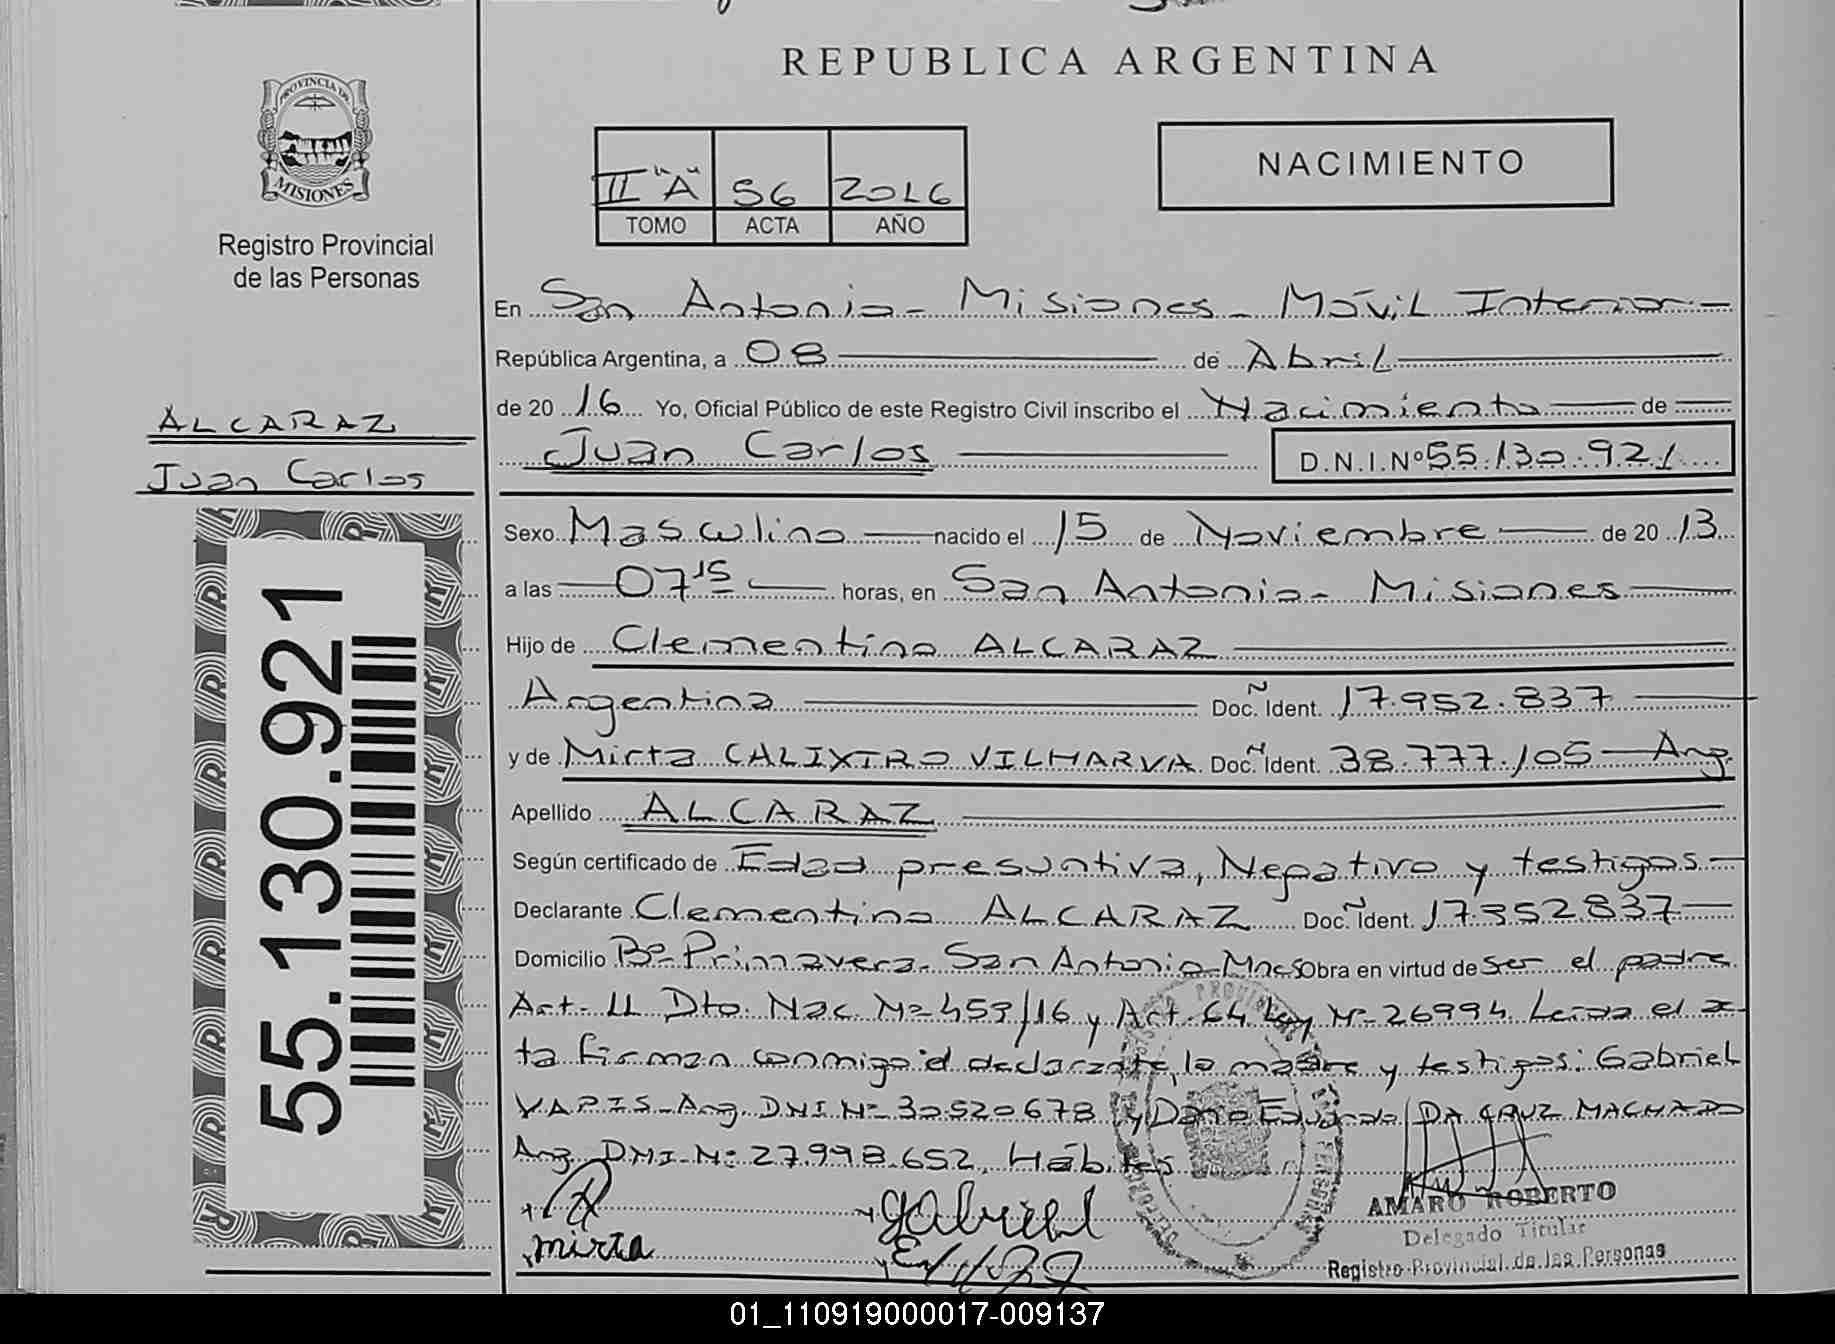 REPUBLICA ARGENTINA
PROVINCIA DE
MISIONES
Registro Provincial
de las Personas
II "A" 56 2016
TOMO ACTA AÑO
NACIMIENTO
En San Antonio - Misiones - Móvil Interior
República Argentina, a 08 de Abril
de 20 16 Yo, Oficial Público de este Registro Civil inscribo el Nacimiento de
Juan Carlos D.N.I.Nº 55.130.921
ALCARAZ
Juan Carlos
55.130.921
Sexo Masculino nacido el 15 de Noviembre de 20 13
a las 07 15 horas, en San Antonio - Misiones
Hijo de Clementino ALCARAZ
Argentina Doc. Ñ Ident. 17.952.837
y de Mirta CALIXTRO VILHARVA Doc. Ñ Ident. 38.777.105 - Arg.
Apellido ALCARAZ
Según certificado de Edad presuntiva, Negativo y testigos
Declarante Clementino ALCARAZ Doc. Ñ Ident. 17.952837
Domicilio Bº Primavera - San Antonio - Mnes Obra en virtud de ser el padre
Art. 11 Dto. Nac. Nº 459/16 y Art. 64 Ley Nº 26994. Leida el ac
ta firman conmigo el declarante, la madre y testigos: Gabriel
Arg. DNI Nº 30.520.678 y Dario Eduardo DA CRUZ MACHADO
Arg. DNI. Nº 27.998.652, Hábiles
gabriel
mirta
AMARO ROBERTO
Delegado Titular
Registro Provincial de las Personas
01_110919000017-009137